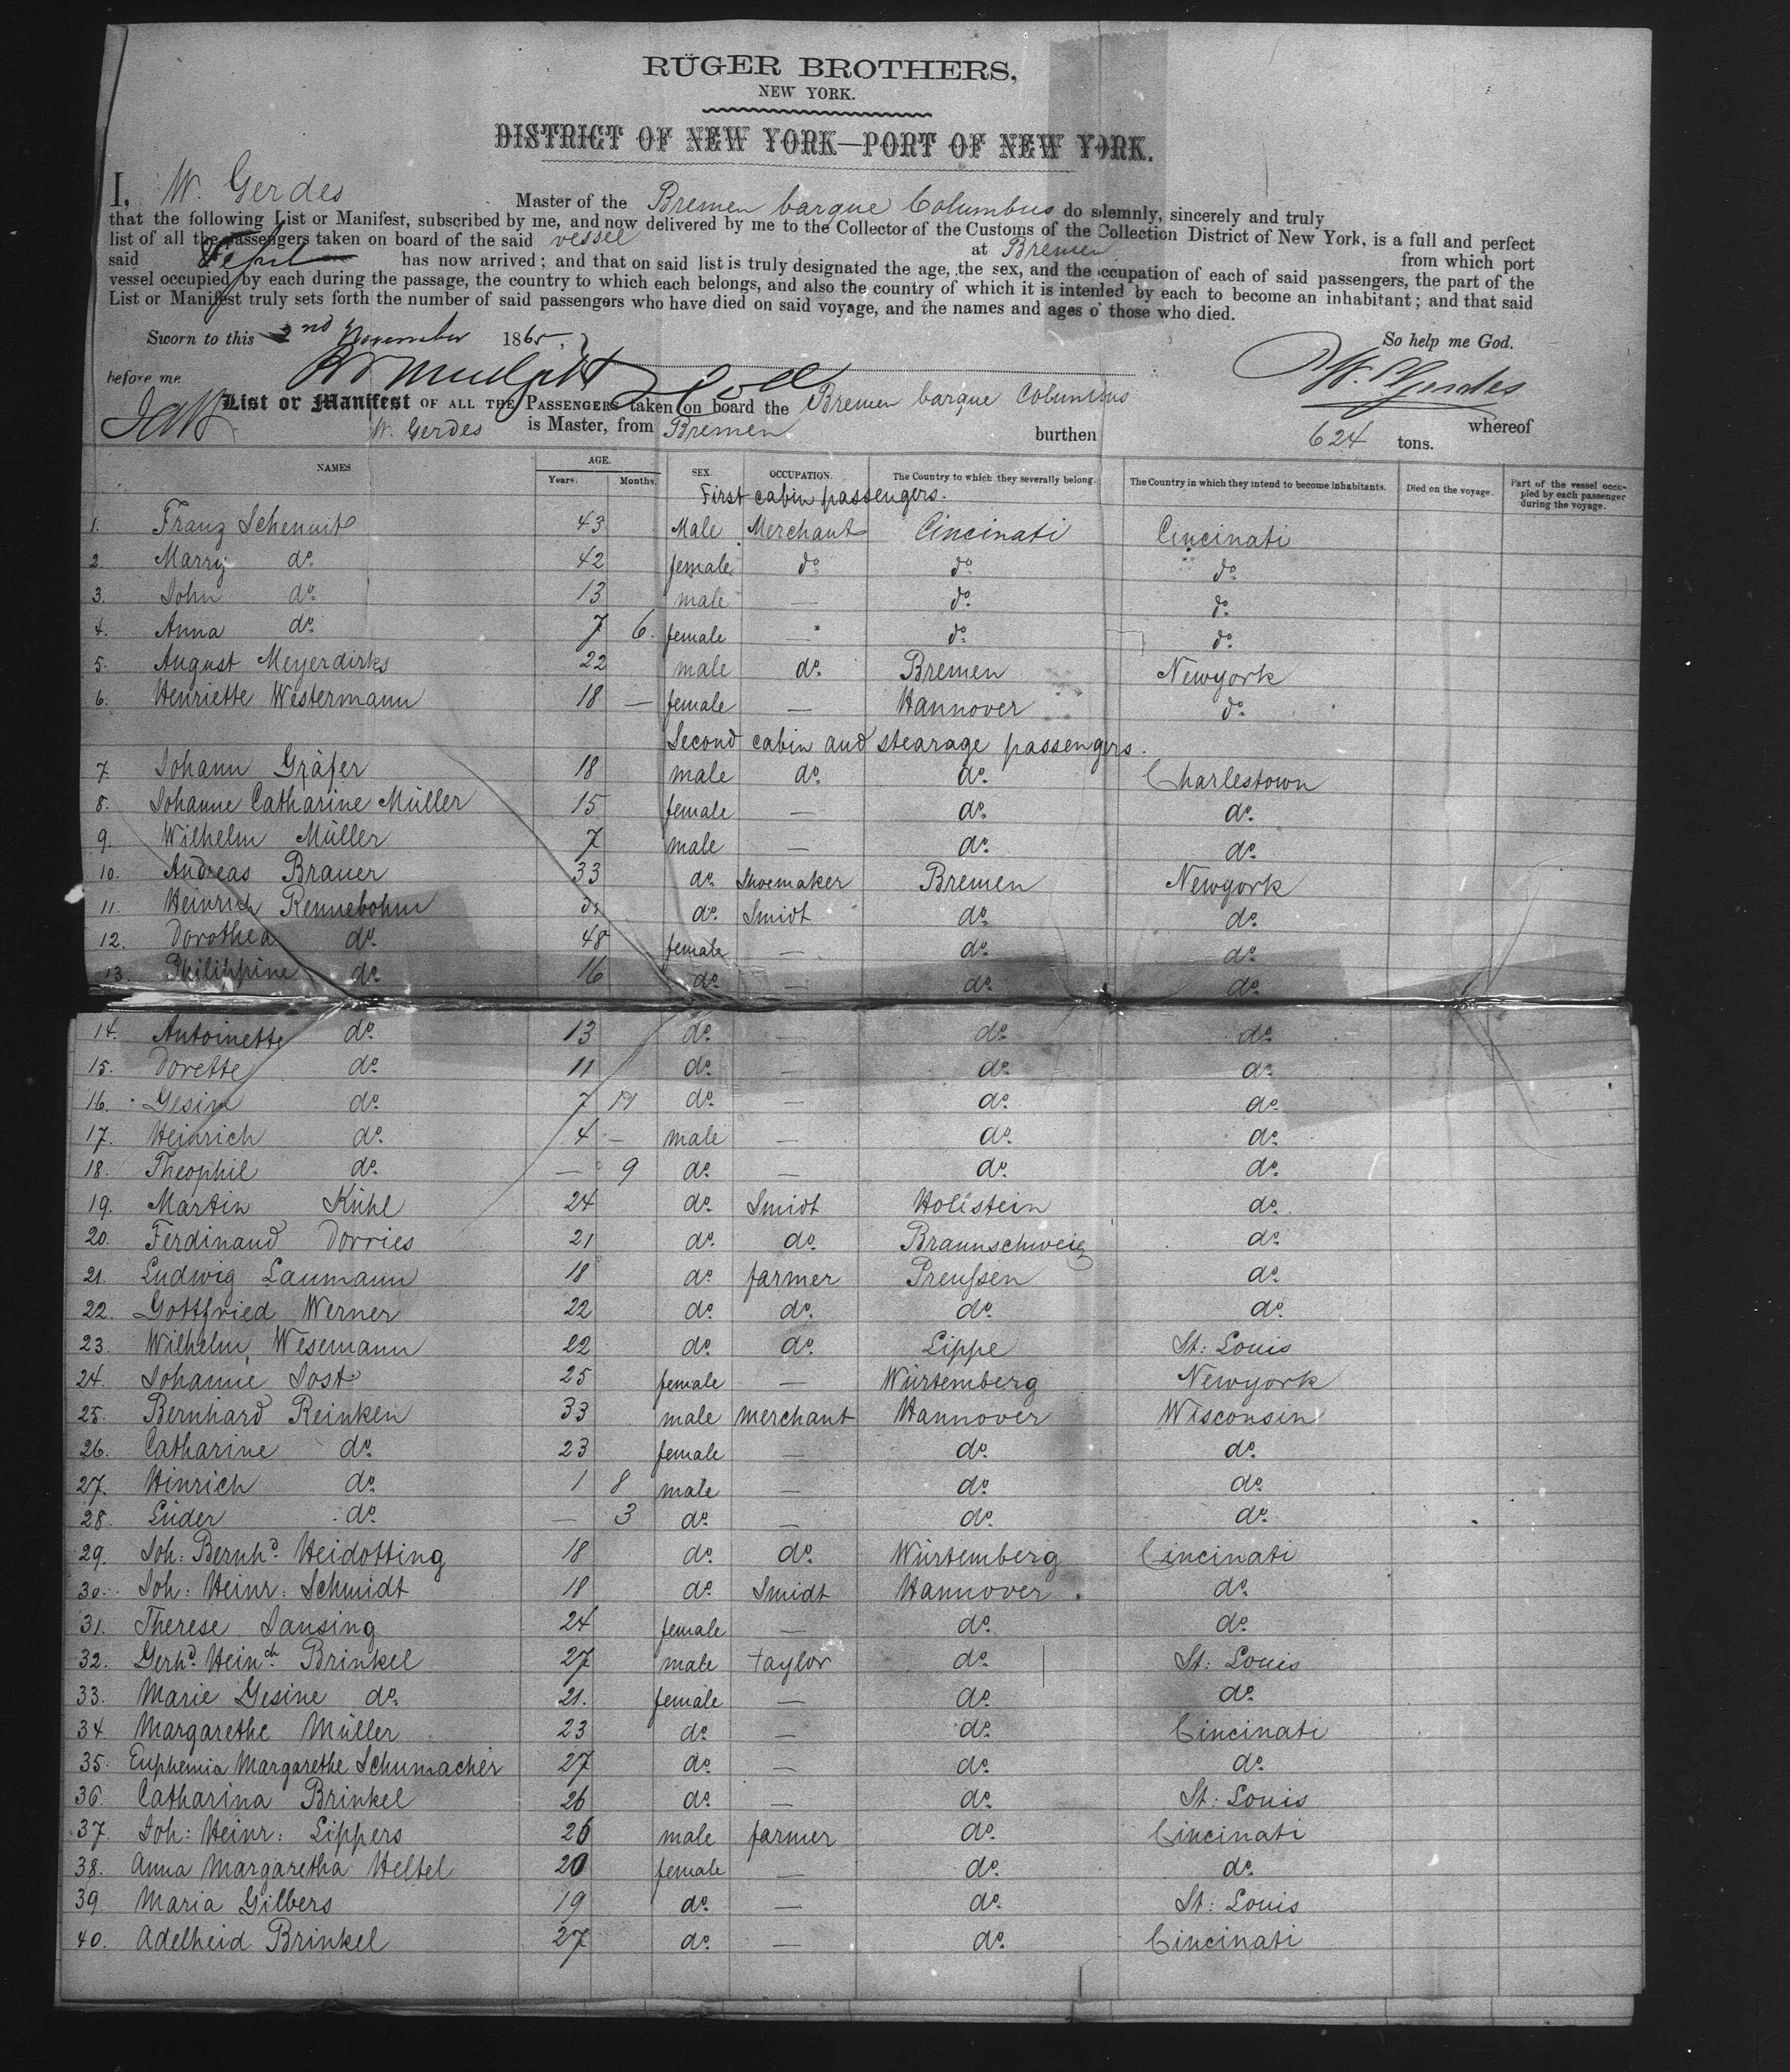 RÜGER BROTHERS,
NEW YORK.
DISTRICT OF NEW YORK—PORT OF NEW YORK.
I, W. Gerdes Master of the Bremen barque Columbus do solemnly, sincerely and truly
that the following List or Manifest, subscribed by me, and now delivered by me to the Collector of the Customs of the Collection District of New York, is a full and perfect
list of all the passengers taken on board of the said vessel at Bremen from which port
said has now arrived; and that on said list is truly designated the age, the sex, and the occupation of each of said passengers, the part of the
vessel occupied by each during the passage, the country to which each belongs, and also the country of which it is intended by each to become an inhabitant; and that said
List or Manifest truly sets forth the number of said passengers who have died on said voyage, and the names and ages of those who died.
Sworn to this 2nd November 1865, So help me God.
before me W. Gerdes
List or Manifest OF ALL THE PASSENGERS taken on board the Bremen barque Columbus whereof
W. Gerdes is Master, from Bremen burthen 624 tons.
NAMES AGE. Years. Months. SEX. OCCUPATION. The Country to which they severally belong. The Country in which they intend to become inhabitants. Died on the voyage. Part of the vessel occupied by each passenger during the voyage.
First cabin passengers.
1. Franz Schenuit 43 Male Merchant Cincinati Cincinati
2. Marry do. 42 female do. do. do.
3. John do. 13 male — do. do.
4. Anna do. 7 6. female — do. do.
5. August Meyerdirks 22 male do. Bremen Newyork
6. Henriette Westermann 18 — female — Hannover do.
Second cabin and stearage passengers.
7. Johann Gräfer 18 male do. do. Charlestown
8. Johanne Catharine Müller 15 female — do. do.
9. Wilhelm Müller 7 male — do. do.
10. Andreas Brauer 33 do. Shoemaker Bremen Newyork
11. Heinrich Rennebohm do. Smidt do. do.
12. Dorothea do. 48 female — do. do.
13. Philippine do. 16 do. — do. do.
14. Antoinette do. 13 do. — do. do.
15. Dorette do. 11 do. — do. do.
16. Gesine do. 7 do. — do. do.
17. Heinrich do. 4 — male — do. do.
18. Theophil do. — 9 do. — do. do.
19. Martin Kühl 24 do. Smidt Hollstein do.
20. Ferdinand Dorries 21 do. do. Braunschweig do.
21. Ludwig Laumann 18 do. farmer Preußen do.
22. Gottfried Werner 22 do. do. do. do.
23. Wilhelm Wesemann 22 do. do. Lippe St: Louis
24. Johanne Jost 25 female — Würtemberg Newyork
25. Bernhard Reinken 33 male merchant Hannover Wisconsin
26. Catharine do. 23 female — do. do.
27. Hinrich do. 1 8 male — do. do.
28. Lüder do. — 3 do. — do. do.
29. Joh: Bernhd. Heidotting 18 do. do. Würtemberg Cincinati
30. Joh: Heinr: Schmidt 18 do. Smidt Hannover do.
31. Therese Jansing 24 female — do. do.
32. Gerhd. Heinch. Brinkel 27 male taylor do. St: Louis
33. Marie Gesine do. 21. female — do. do.
34. Margarethe Müller 23 do. — do. Cincinati
35. Euphemia Margarethe Schumacher 27 do. — do. do.
36. Catharina Brinkel 26 do. — do. St: Louis
37. Joh: Heinr: Lippers 26 male farmer do. Cincinati
38. Anna Margaretha Heltel 20 female — do. do.
39. Maria Gilbers 19 do. — do. St: Louis
40. Adelheid Brinkel 27 do. — do. Cincinati